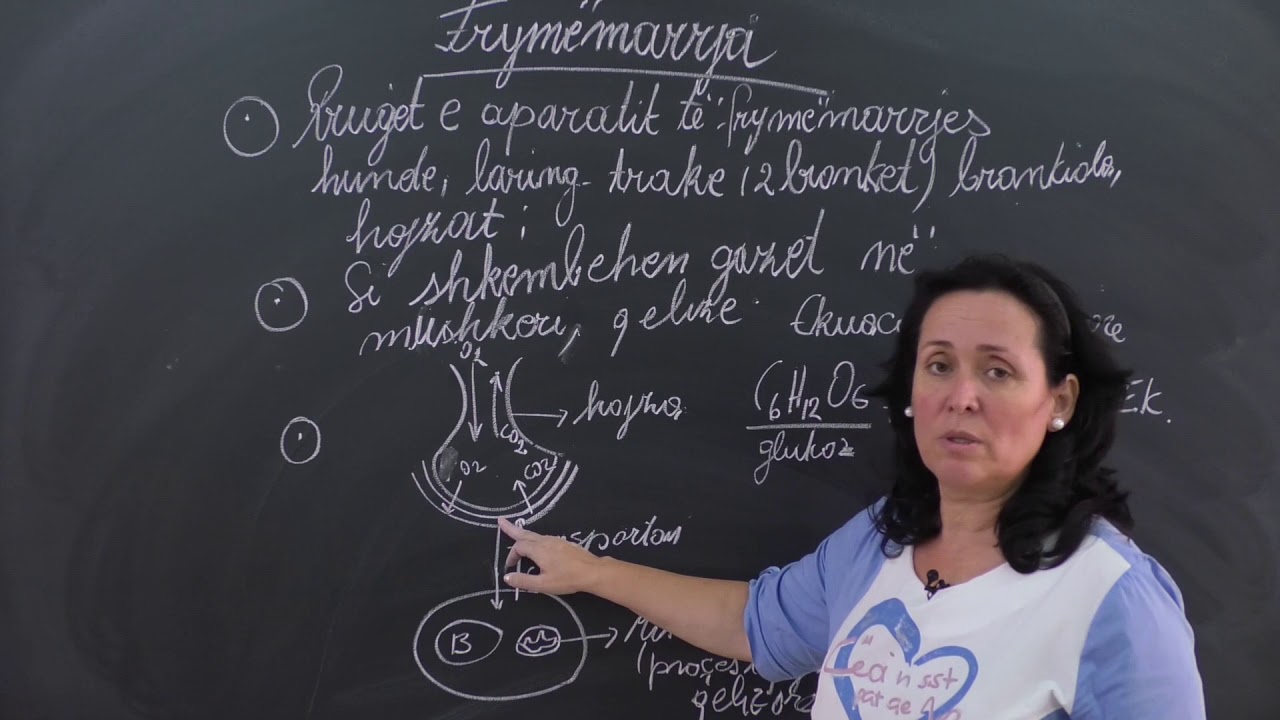 Frymëmarrja
Rruget e aparatit të frymëmarrjes
hunde, laring - trake (2 bronket)
hojzat;
Si shkembehen gazet në
mushkori, qelize
O2
CO2
hojza
O2
CO2
C6H12O6
Ek.
glukoz
B
(proçes
qelizore